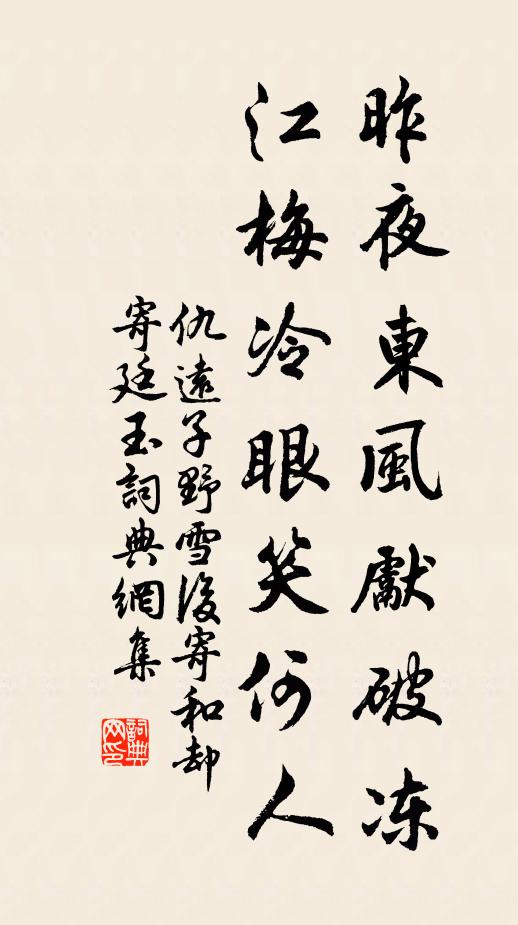 昨夜東風獻破凍
江梅冷眼笑何人
仇遠子野雪後寄和却
寄廷玉詞典網集
詞典
网印